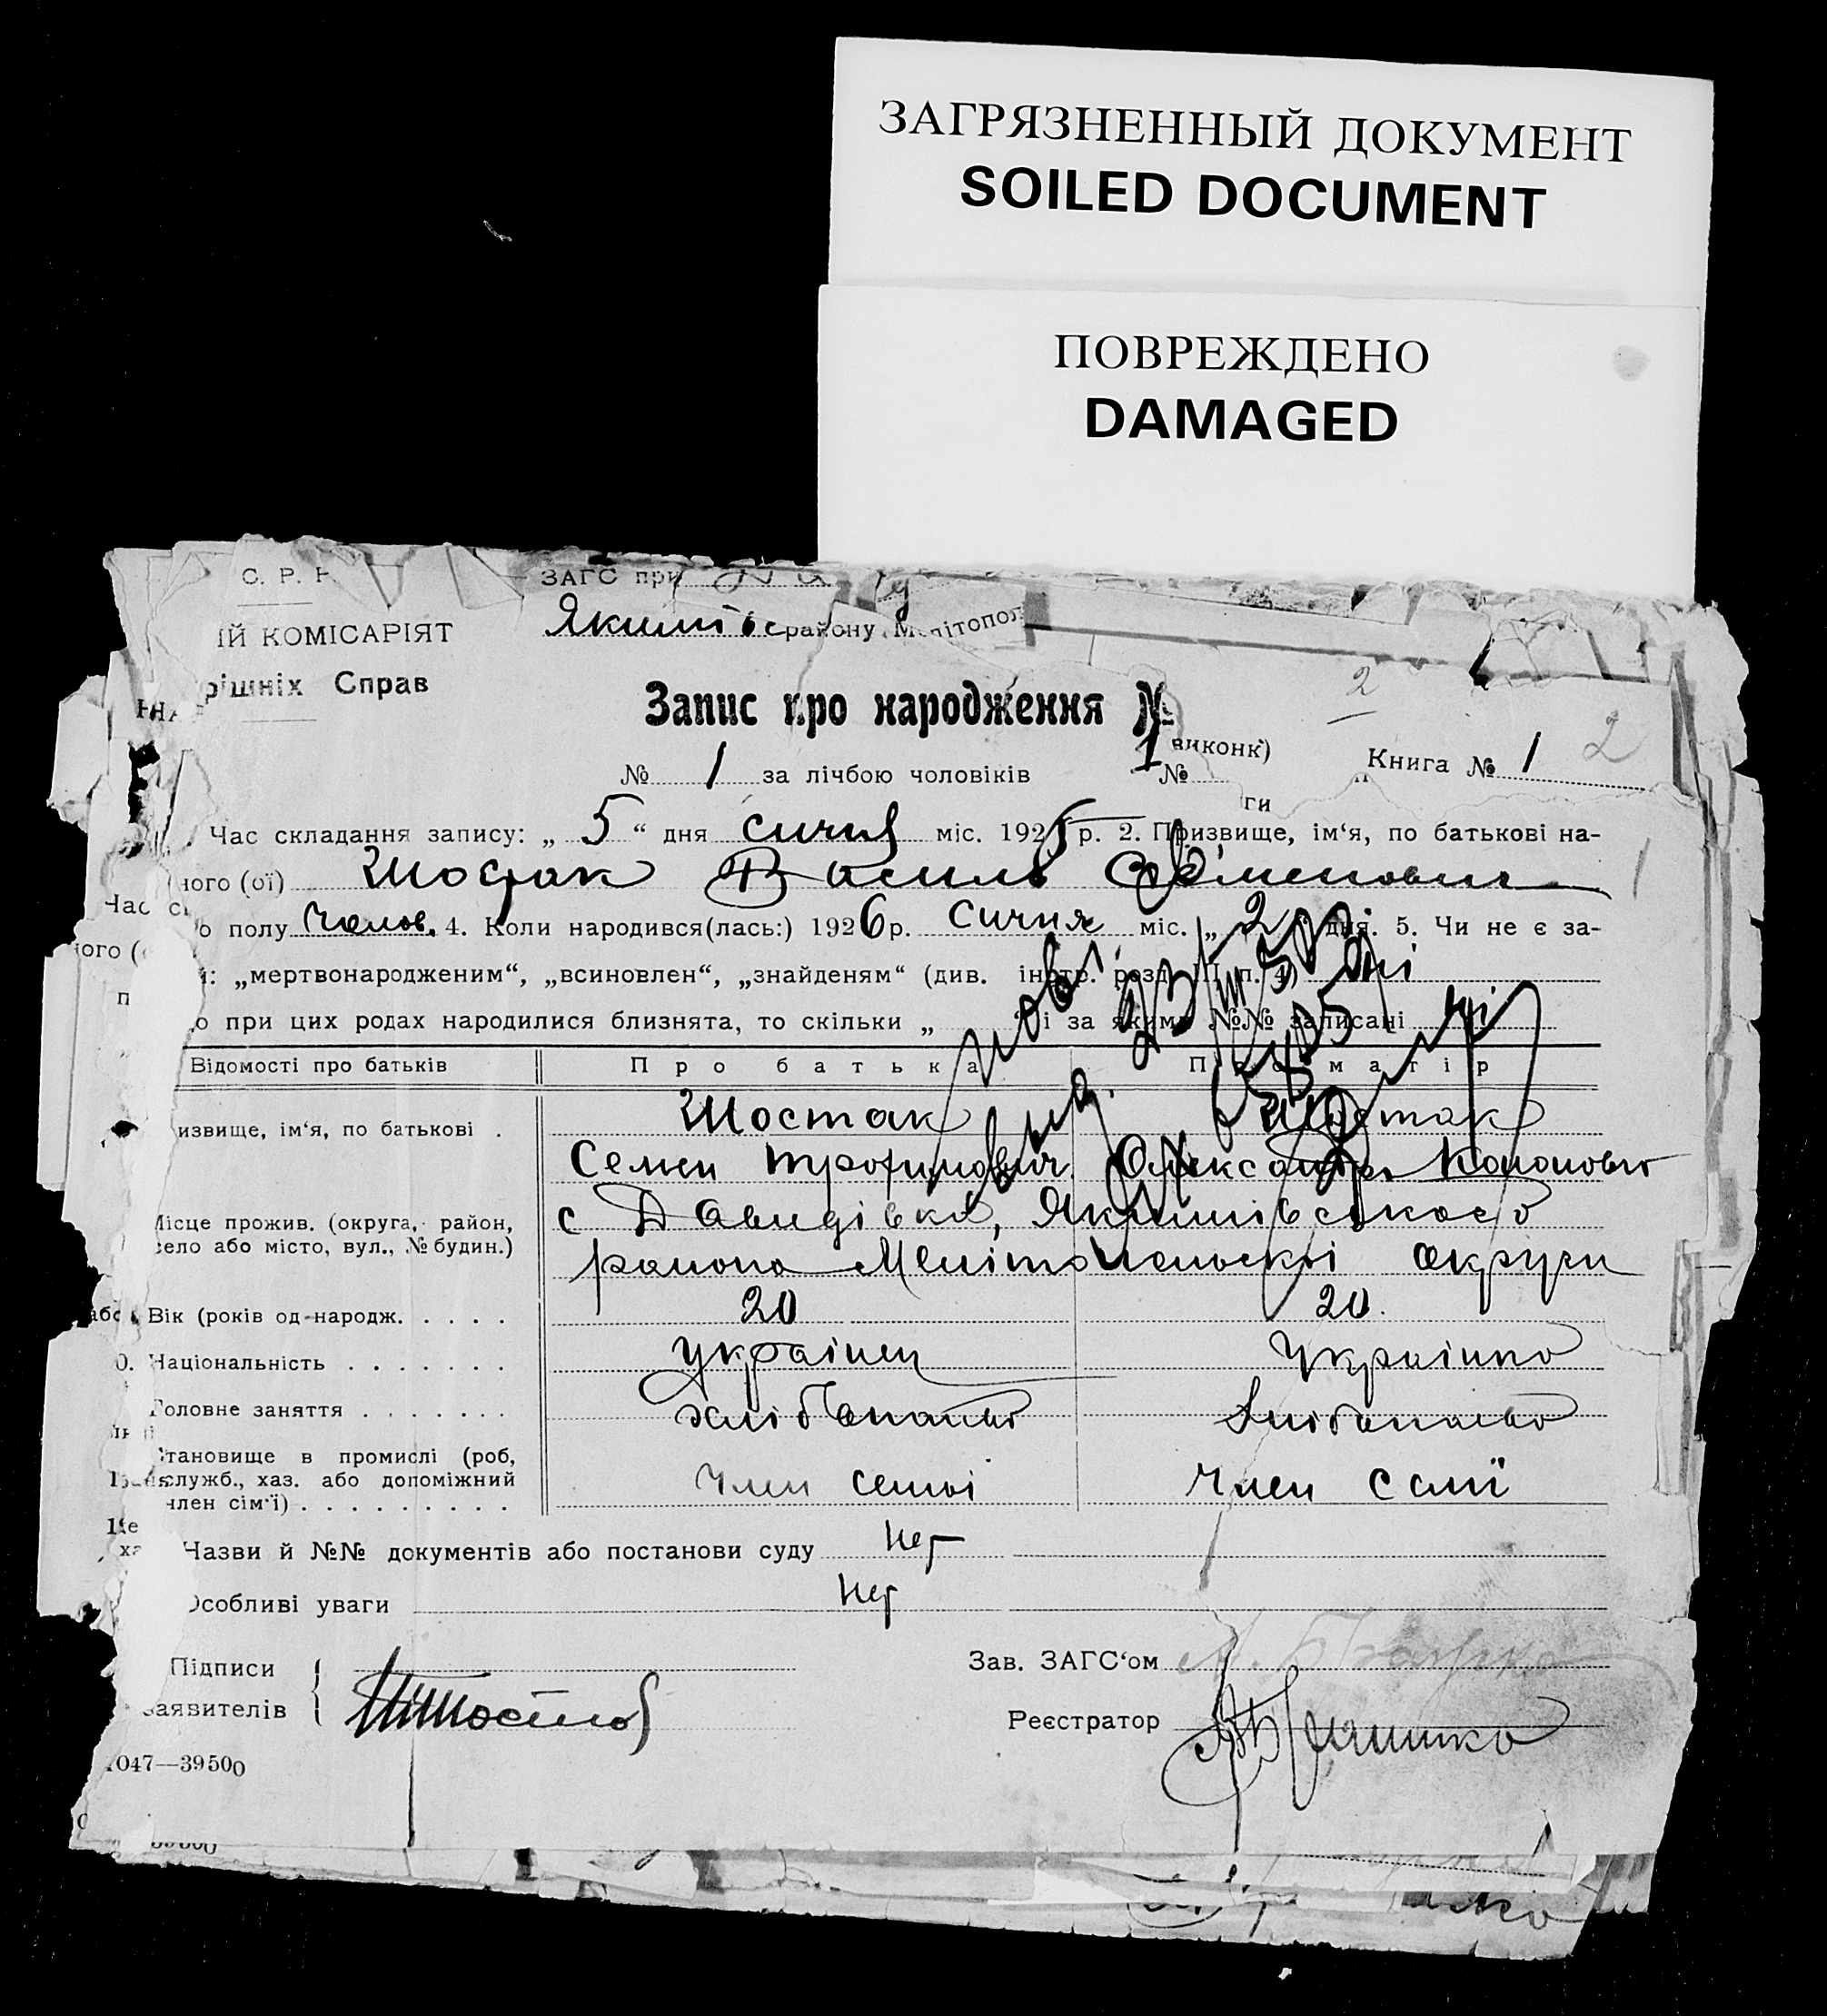 ЗАГРЯЗНЕННЫЙ ДОКУМЕНТ
SOILED DOCUMENT
ПОВРЕЖДЕНО
DAMAGED
С. Р. Р
ЗАГС при
ІЙ КОМІСАРІЯТ
району Мелітопол
рішніх Справ
Запис про народження №
2
1 виконк)
№ 1 за лічбою чоловіків
№
Книга № 1 2
ги
Час складання запису: „ 5 “ дня сичня міс. 192 р. 2. Призвище, ім‘я, по батькові на-
ного (ої) Шостак Василь Семенович
о полу Чолов. 4. Коли народився(лась:) 1926 р. Сичня міс. „ 2 “ дня. 5. Чи не є за-
й: „мертвонародженим“, „всиновлен“, „знайденям“ (див. інстр. розд. III п. 4) Ні
о при цих родах народилися близнята, то скільки „ “ і за якими №№ записані ні
Відомості про батьків
Про батька
Про матір
извище, ім‘я, по батькові .
Шостак
Шостак
Семен Трофимович
Олександра
Місце прожив. (округа, район,
село або місто, вул., № будин.)
с Давидівка, Якимівського
района Мелітопольскої округи
Вік (років од-народж. . . . .
20
20.
0. Національність . . . . . . .
Українец
Українка
Головне заняття . . . . . . .
хліборобство
Становище в промислі (роб,
служб., хаз. або допоміжний
член сім‘ї) . . . . . . . . .
Член семьі
Член семї
Назви й №№ документів або постанови суду Нет
Особливі уваги Нет
Підписи
заявителів
Зав. ЗАГС‘ом
Реєстратор
1047—39500